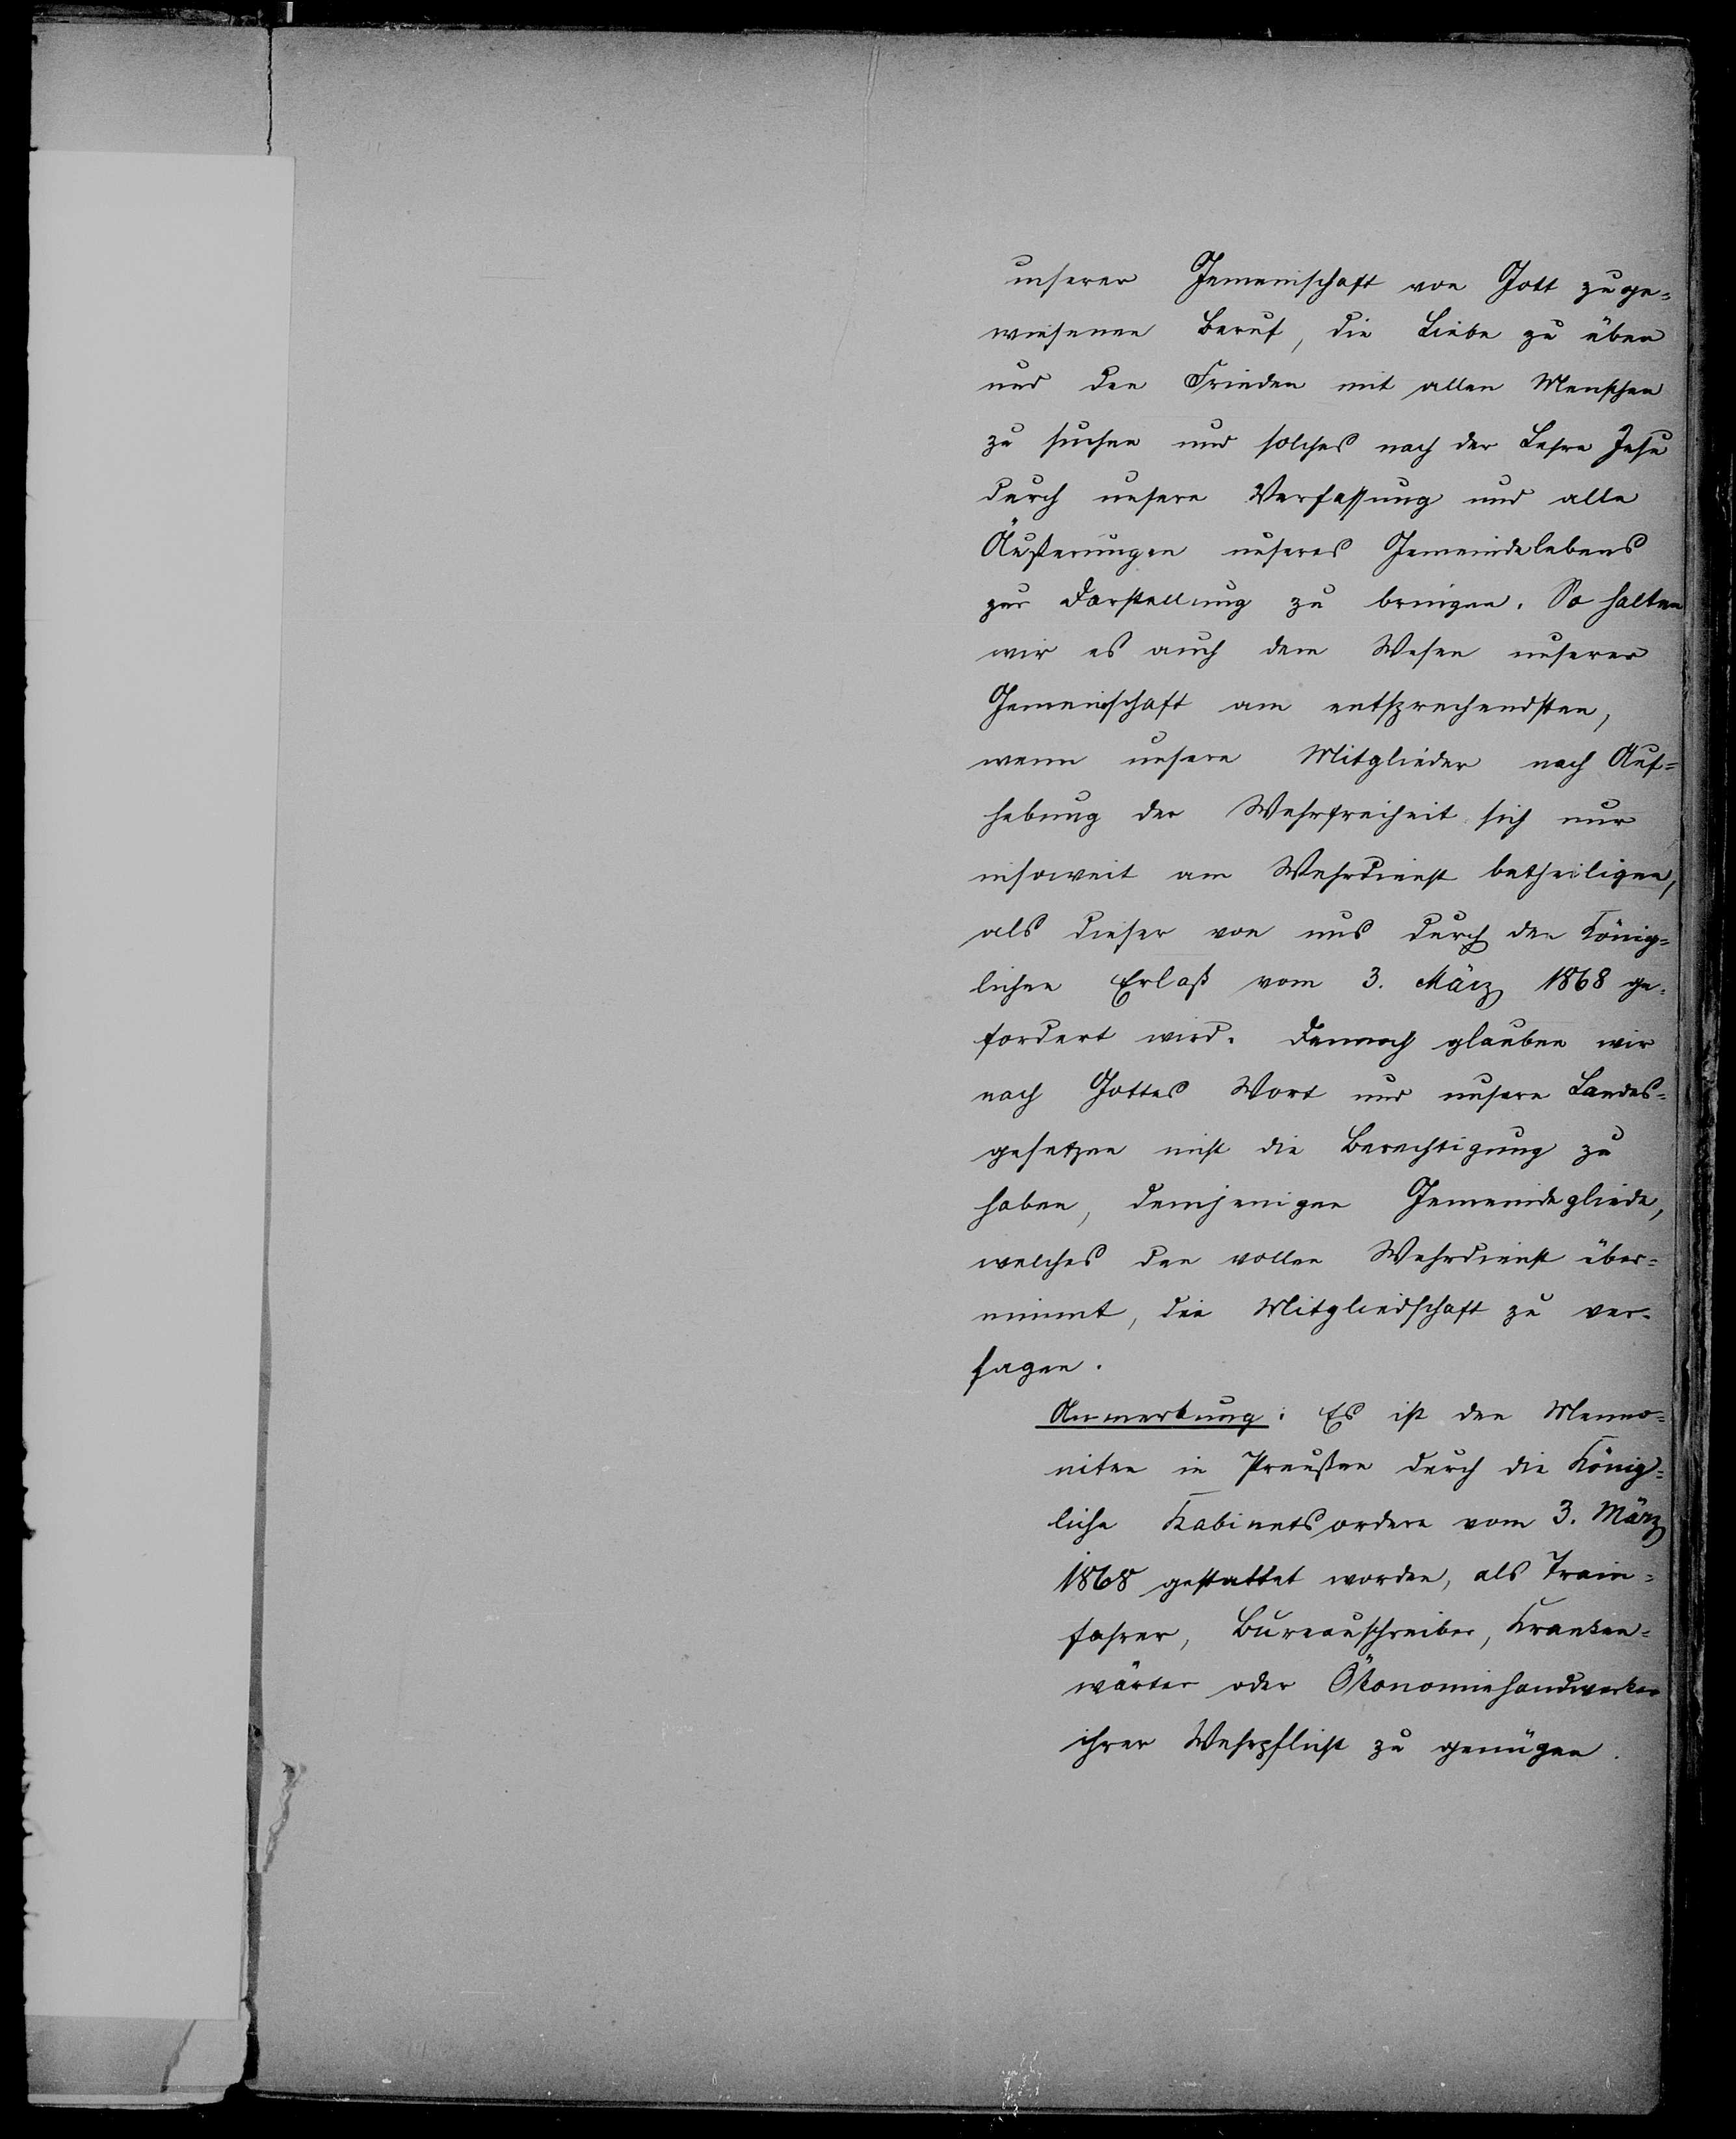 unserer Gemeinschaft von Gott zuge-
wiesenen Beruf, die Liebe zu üben
und den Frieden mit allen Menschen
zu suchen und solches nach der Lehre Jesu
durch unsere Verfassung und alle
Äußerungen unseres Gemeindelebens
zur Darstellung zu bringen. So halten
wir es auch dem Wesen unserer
Gemeinschaft am entsprechendsten,
wenn unsere Mitglieder nach Auf-
hebung der Wehrfreiheit sich nur
insoweit am Wehrdienst betheiligen,
als dieser von uns durch den König-
lichen Erlaß vom 3. März 1868 ge-
fordert wird. Dennoch glauben wir
nach Gottes Wort und unsere Landes-
gesetzen nicht die Berechtigung zu
haben, demjenigen Gemeindegliede,
welches den vollen Wehrdienst über-
nimmt, die Mitgliedschaft zu ver-
sagen.
Anmerkung: Es ist den Menno-
niten in Preußen durch die König-
liche Kabinetsordere vom 3. März
1868 gestattet worden, als Train-
fahrer, Bureauschreiber, Kranken-
wärter oder Ökonomiehandwerker
ihrer Wehrpflicht zu genügen.